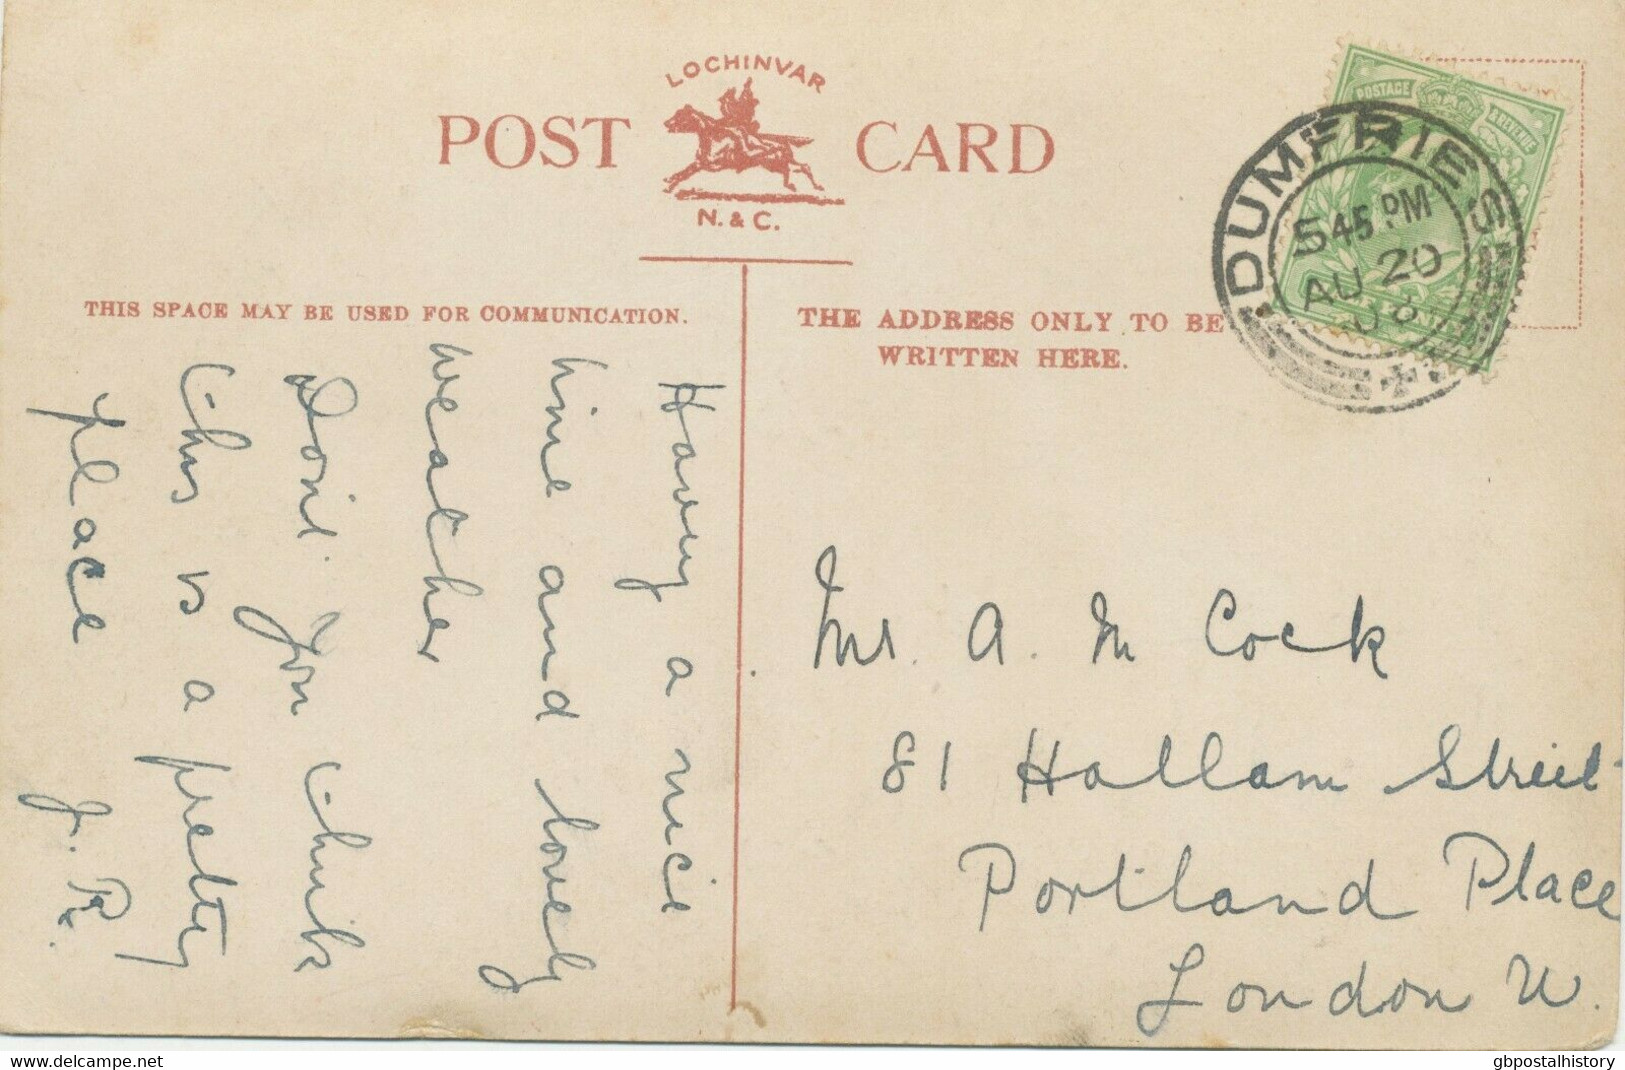 LOCHINVAR
POST CARD
N. & C.
THIS SPACE MAY BE USED FOR COMMUNICATION.
THE ADDRESS ONLY TO BE
WRITTEN HERE.
POSTAGE & REVENUE
DUMFRIES
545 PM
AU 20
08
Having a nice
time and lovely
weather
Don't you think
this is a pretty
place
J. R.
Mr. A. M Cock
81 Hallam Street
Portland Place
London W.
delcampe.net
gbpostalhistory